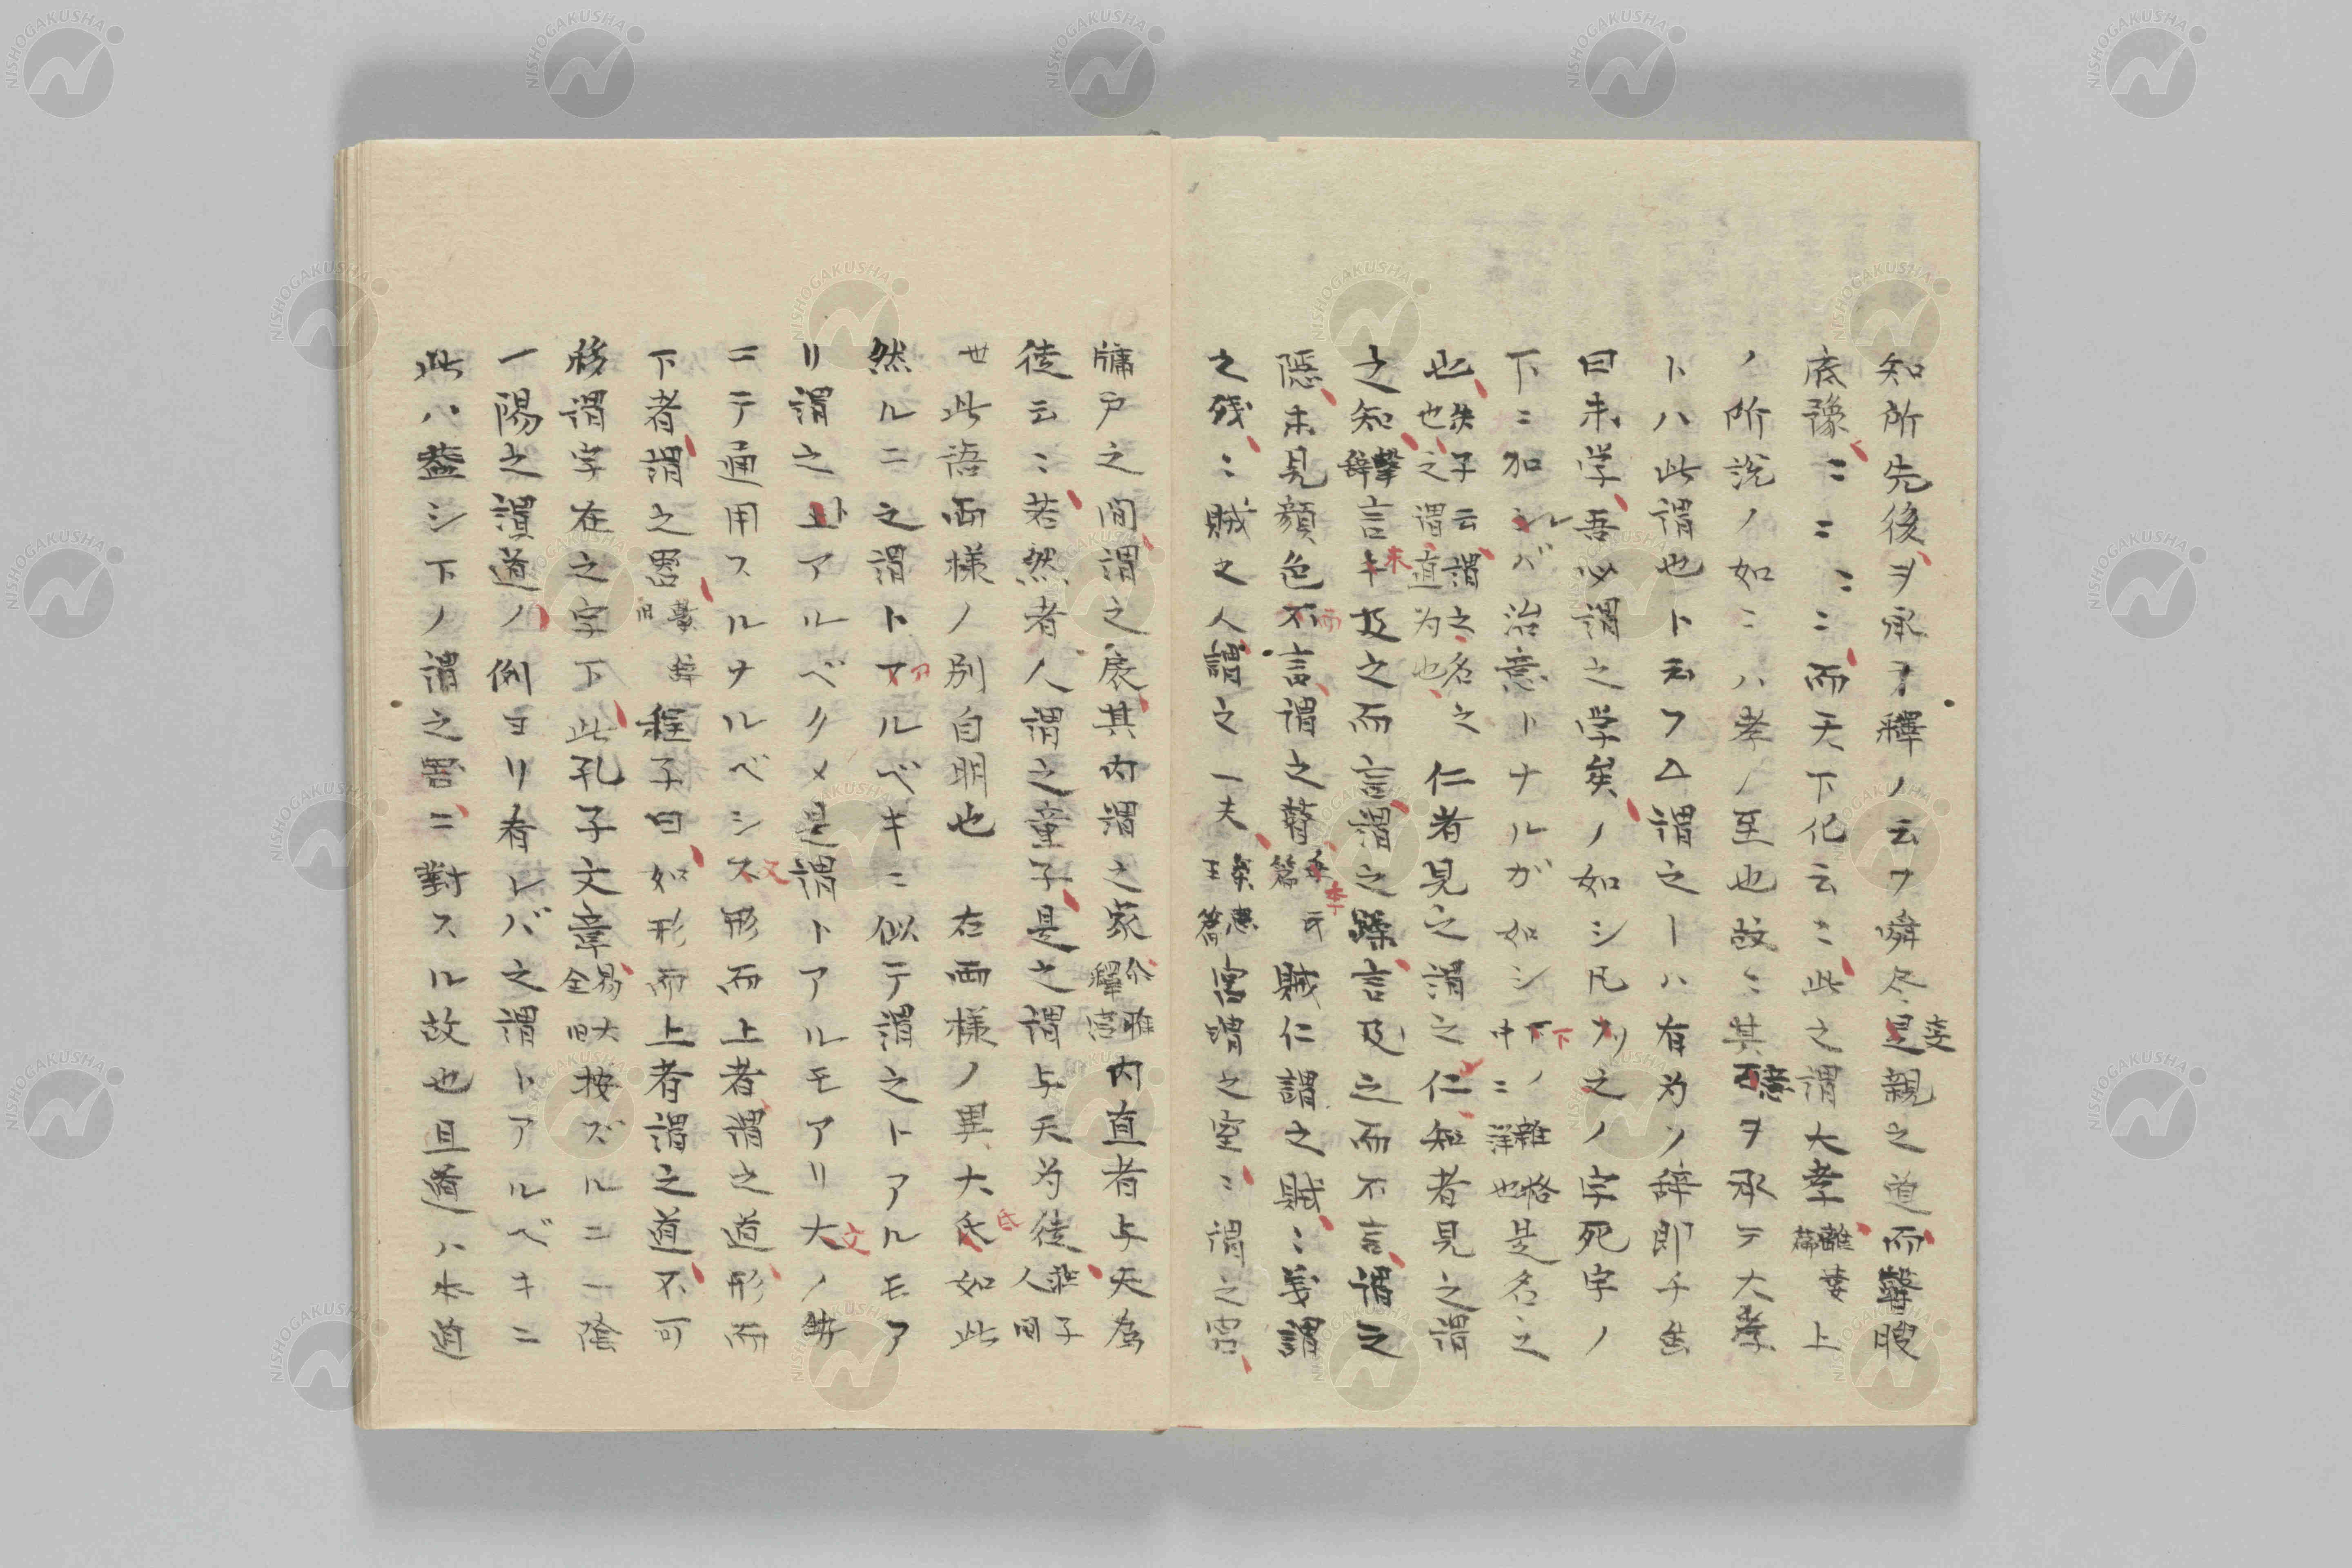 知所先後ヲ承テ釋ノ云フ舜尽是親之道而瞽瞍
底豫ニニニニ而天下化云云此之謂大孝離婁上篇
ノ所説ノ如ニハ孝ノ至也故ニ其意ヲ承テ大孝
トハ此謂也ト云フ又謂之トハ有為ノ辞即チ
曰未学吾必謂之学矣ノ如シ凡ソ之ノ字死字ノ
下ニ加レバ治意トナルガ如シ下ノ中ニ是名之
也朱子云謂之名之也之謂直為也仁者見之謂之仁知者見之謂
之知繋辞言未及之而言謂之躁言及之而不言謂之
隠未見顔色而言謂之瞽季氏篇賊仁謂之賊ニ義謂
之残ニ賊之人謂之一夫梁恵王篇宮謂之室ニ謂之宮
牖戸之間謂之扆其内謂之家尓雅釋宮内直者与天為
徒云ニ若然者人謂之童子是之謂与天為徒人間
世此語両様ノ別自明也 右両様ノ異大氐如此
然ルニ之謂トアルベキニ似テ謂之トアルモア
リ謂之トアルベクメ是謂トアルモアリ文ノ勢
ニテ通用スルナルベシ又形而上者謂之道形而
下者謂之器 程子曰如形而上者謂之道不可
移謂字在之字下此孔子文章易大全按ズルニ一陰
一陽之謂道ノ例ヨリ看レバ之謂トアルベキニ
此ハ蓋シ下ノ謂之器ニ對スル故也且道ハ本道